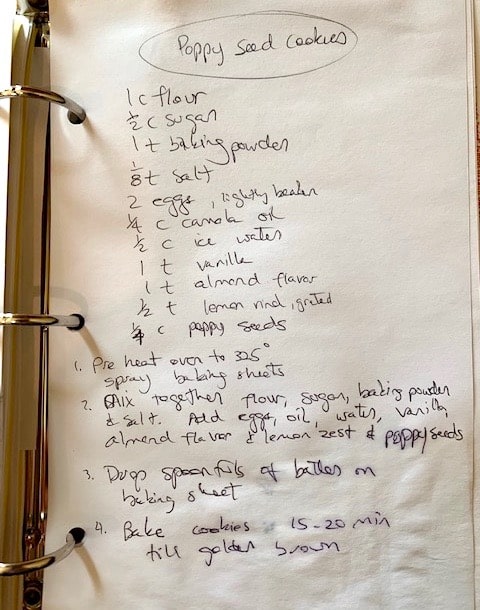 Poppy Seed Cookies
1 c flour
1/2 c sugar
1 t baking powder
1/8 t salt
2 eggs, lightly beaten
1/4 c canola oil
1/2 c ice water
1 t vanilla
1 t almond flavor
1/2 t lemon rind, grated
1/4 c poppy seeds
1. Pre heat oven to 325°
spray baking sheets
2. Mix together flour, sugar, baking powder
& salt. Add eggs, oil, water, vanilla,
almond flavor & lemon zest & poppy seeds
3. Drop spoonfuls of batter on
baking sheet
4. Bake cookies 15-20 min
till golden brown